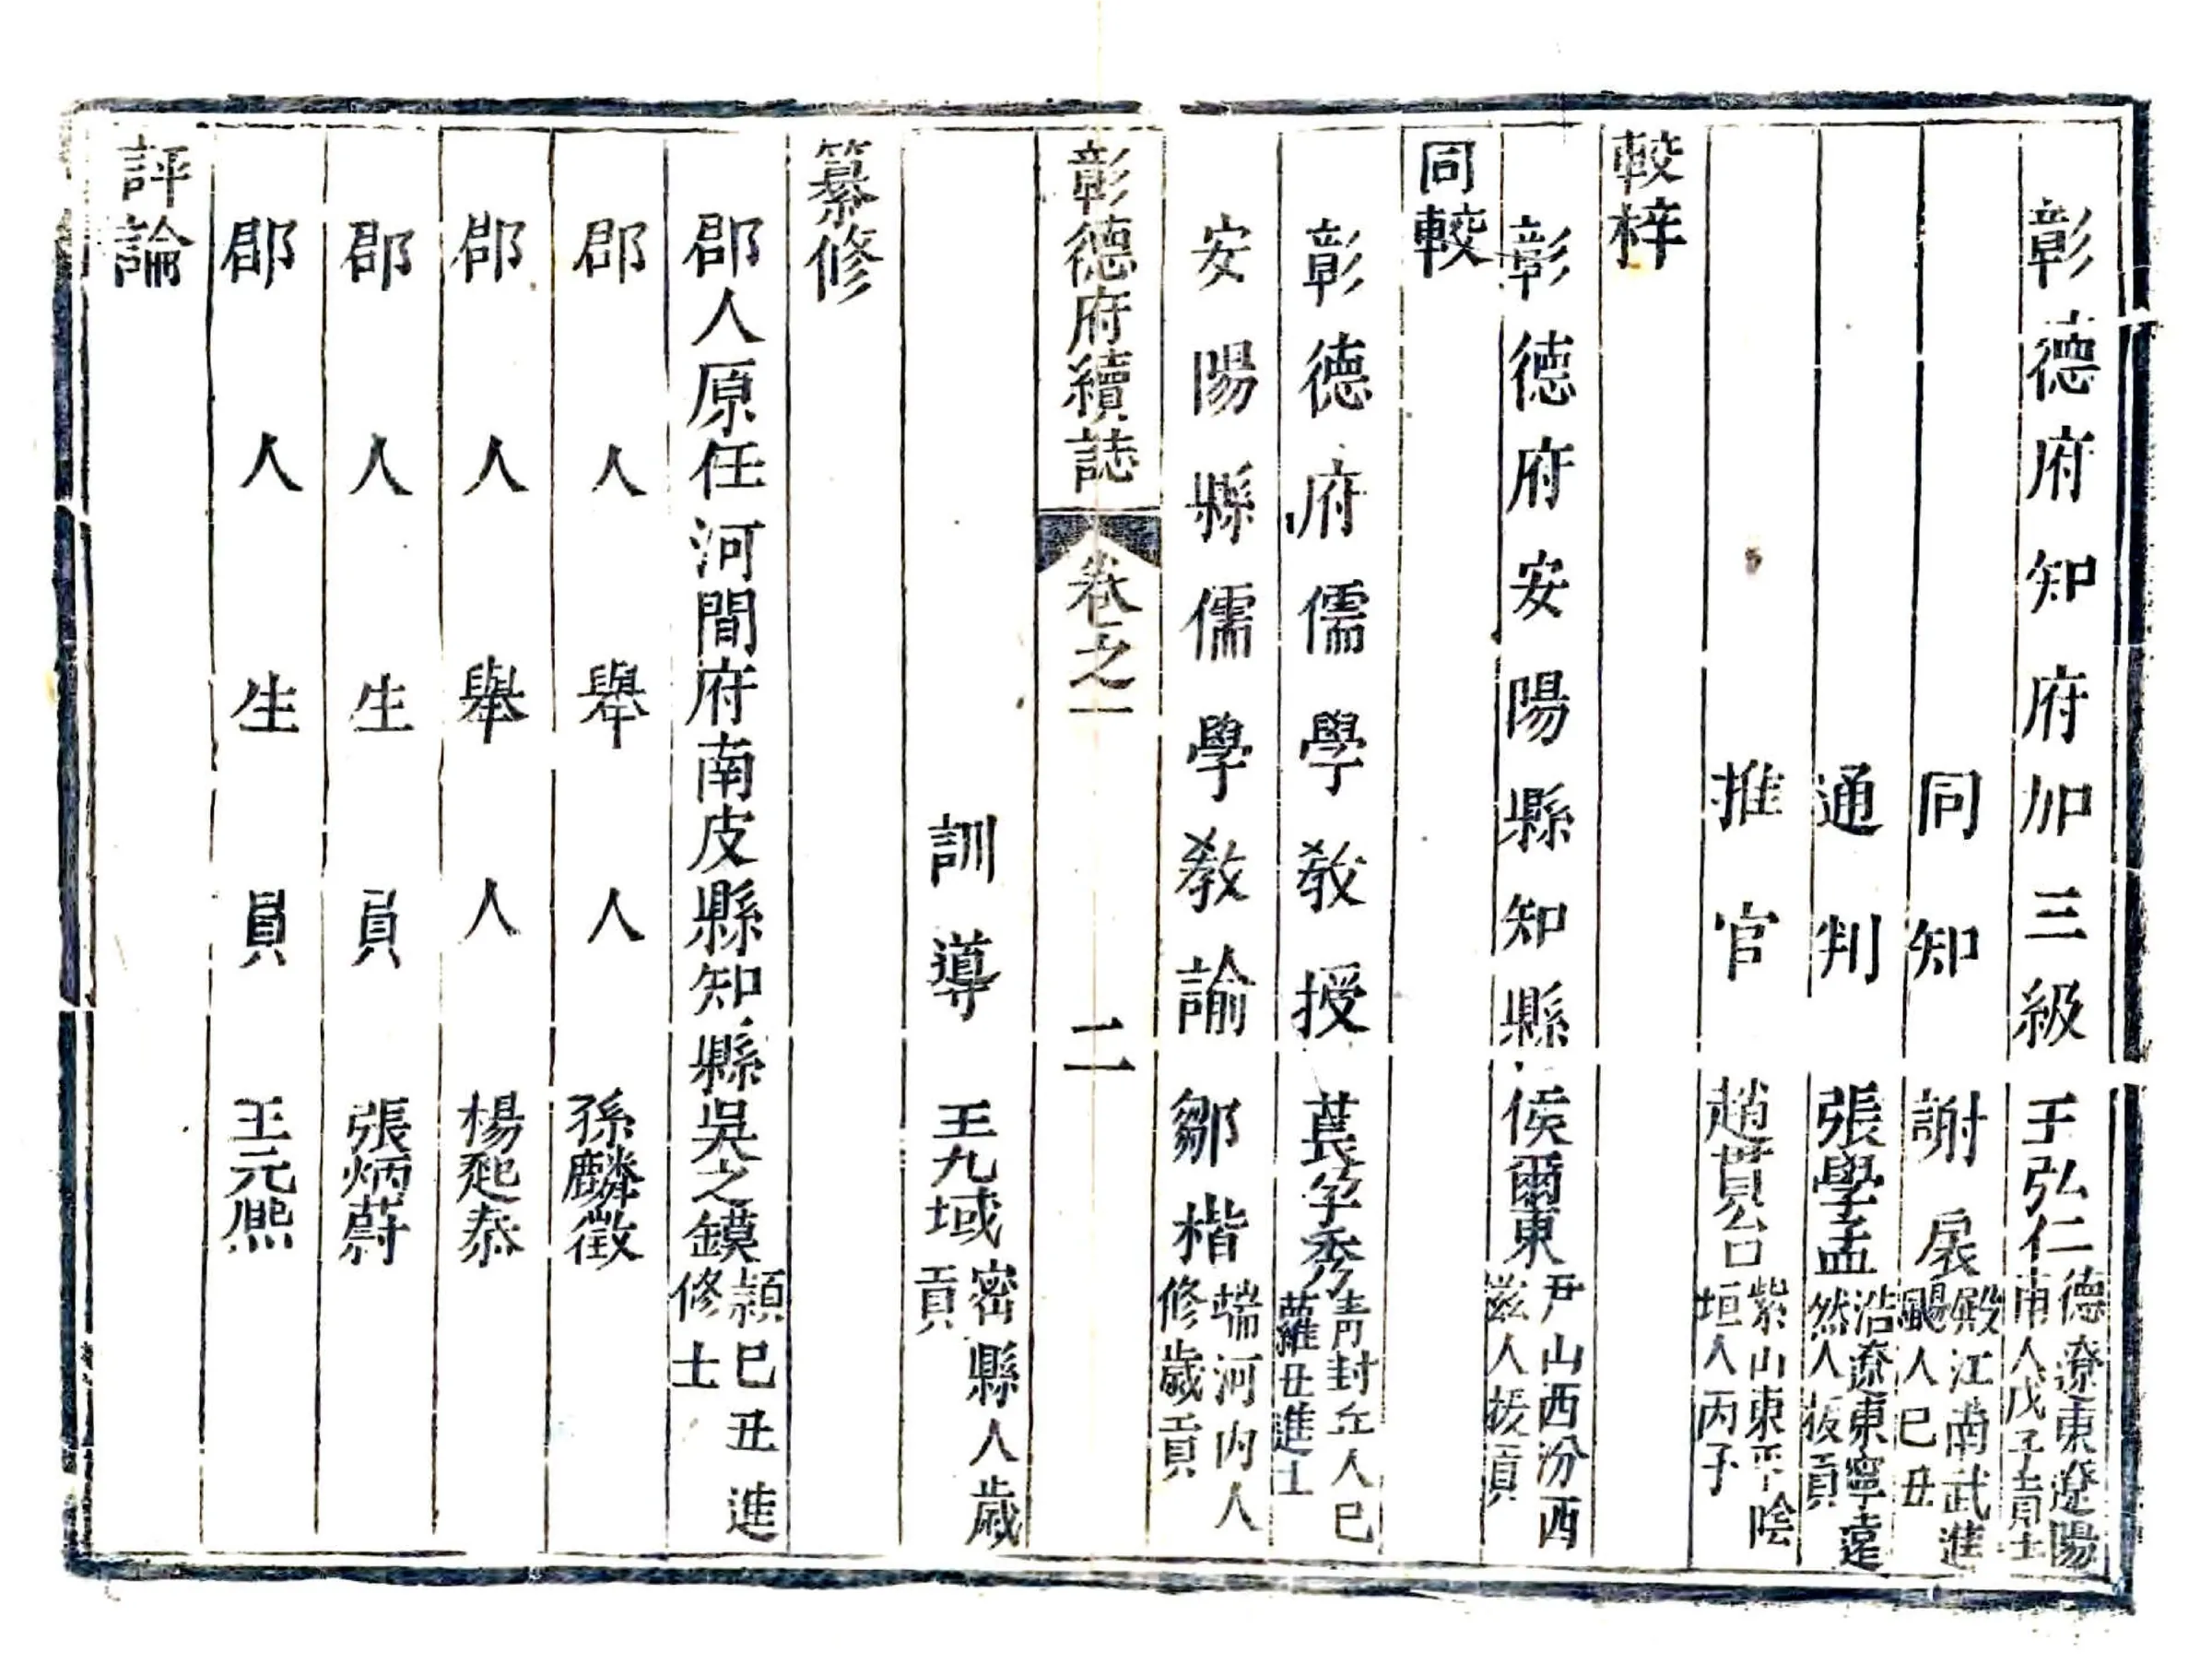 彰德府知府加三級王弘仁德甫遼東遼陽人戊子貢士
同知謝扆殿颺江南武進人巳丑
通判張學孟浩然遼東寧遠人拔貢
推官趙貫台紫垣山東平陰人丙子
較梓
彰德府安陽縣知縣侯爾東尹滋山西汾西人拔貢
同較
彰德府儒學教授萇孕秀青蘿封丘人巳丑進士
安陽縣儒學教諭鄒楷端修河內人歲貢
彰德府續誌 卷之一 二
訓導王九域密縣人歲貢
纂修
郡人原任河間府南皮縣知縣吳之鏌穎修巳丑進士
郡人舉人孫麟徵
郡人舉人楊起泰
郡人生員張炳蔚
郡人生員王元熈
評論